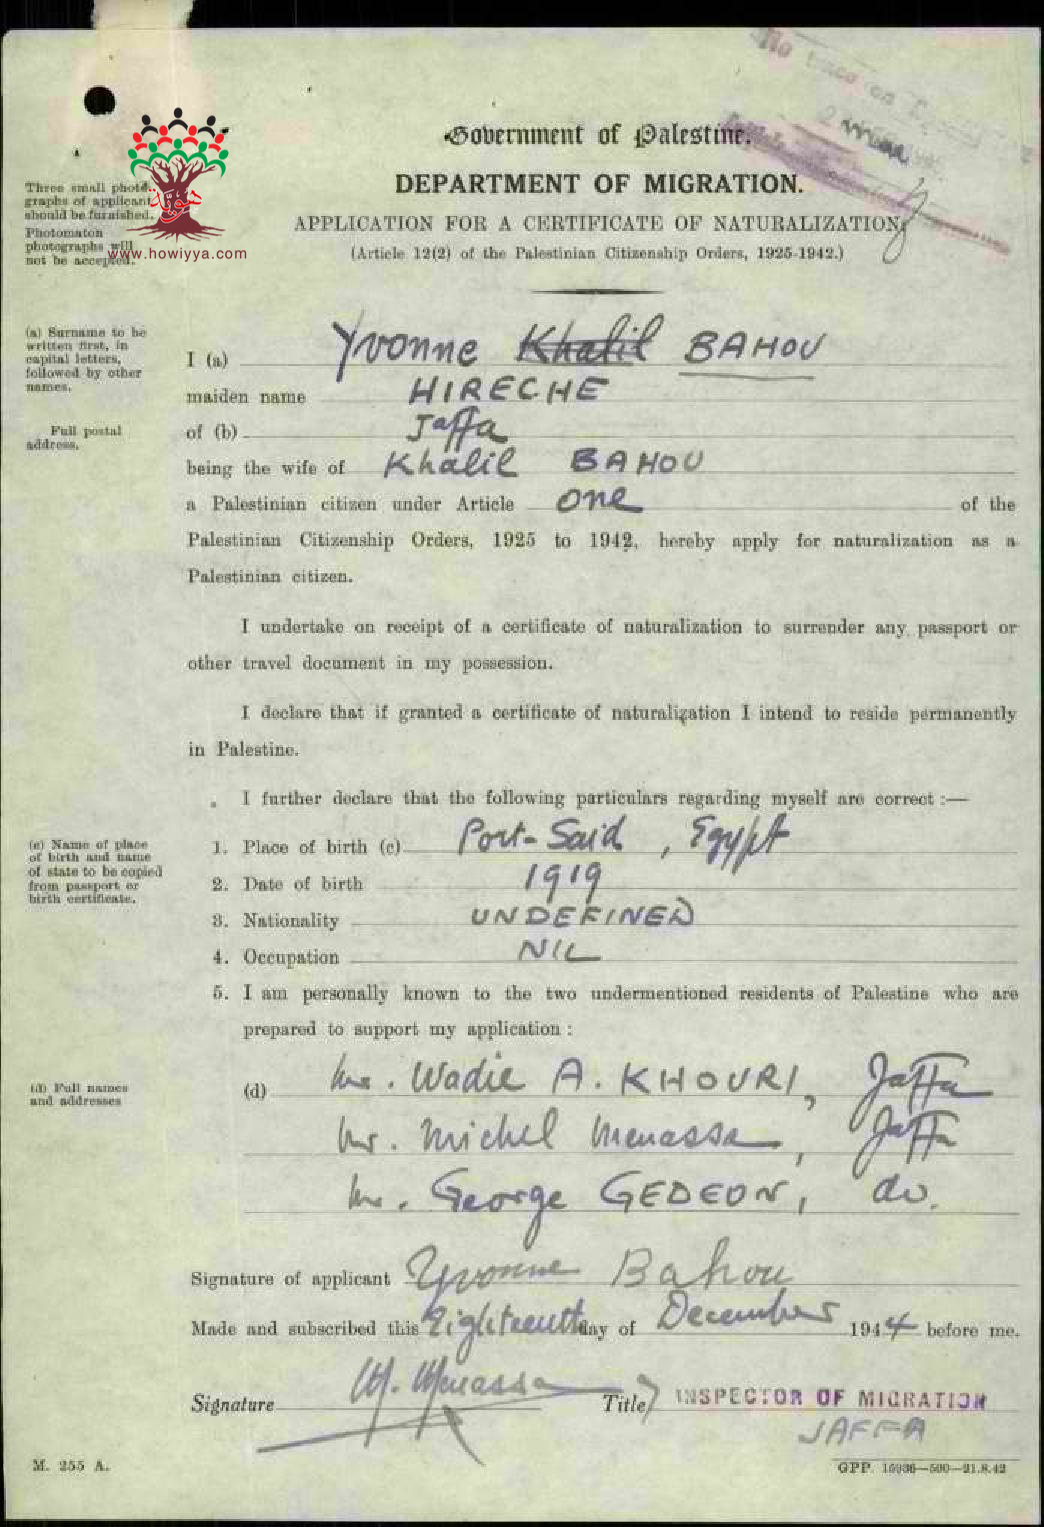 Government of Palestine.
DEPARTMENT OF MIGRATION.
APPLICATION FOR A CERTIFICATE OF NATURALIZATION
(Article 12(2) of the Palestinian Citizenship Orders, 1925-1942.)
Three small photo-
graphs of applicant
should be furnished.
Photomaton
photographs will
not be accepted.
هوية
www.howiyya.com
(a) Surname to be
written first, in
capital letters,
followed by other
names.
I (a) Yvonne Khalil BAHOU
maiden name HIRECHE
Full postal
address.
of (b) Jaffa
being the wife of Khalil BAHOU
a Palestinian citizen under Article one of the
Palestinian Citizenship Orders, 1925 to 1942, hereby apply for naturalization as a
Palestinian citizen.
I undertake on receipt of a certificate of naturalization to surrender any passport or
other travel document in my possession.
I declare that if granted a certificate of naturalization I intend to reside permanently
in Palestine.
I further declare that the following particulars regarding myself are correct :—
(c) Name of place
of birth and name
of state to be copied
from passport or
birth certificate.
1. Place of birth (c) Port-Said, Egypt
2. Date of birth 1919
3. Nationality UNDEFINED
4. Occupation NIL
5. I am personally known to the two undermentioned residents of Palestine who are
prepared to support my application :
(d) Full names
and addresses
(d) Mr. Wadie A. KHOURI, Jaffa
Mr. Michel Menassa, Jaffa
Mr. George GEDEON, do.
Signature of applicant Yvonne Bahou
Made and subscribed this Eighteenth day of December 1944 before me.
Signature M. Menassa Title INSPECTOR OF MIGRATION
JAFFA
M. 255 A.
GPP. 15936—500—21.8.42